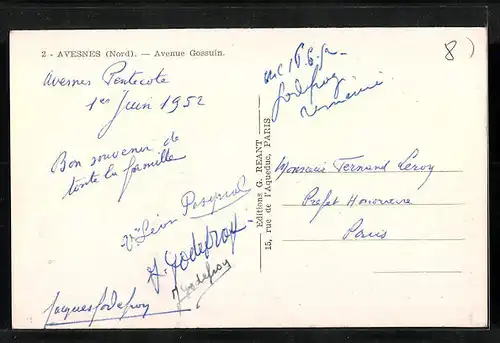 2 - AVESNES (Nord). — Avenue Gossuin.
Avesnes Pentecote
1er Juin 1952
Bon souvenir de
toute la famille
Vve Léon Pasqual
J. Godefroy
Godefroy
Jacques Godefroy
Editions G. REANT
15, rue de l'Aqueduc, PARIS
Godefroy
Monsieur Fernand Leroy
Prefet Honoraire
Paris
8)